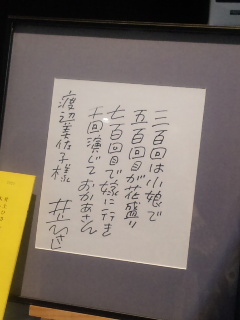 三百回は小娘で
五百回目が花盛り
七百回目で嫁に行き
千回演じておかあさん
渡辺美佐子様 井上ひさし